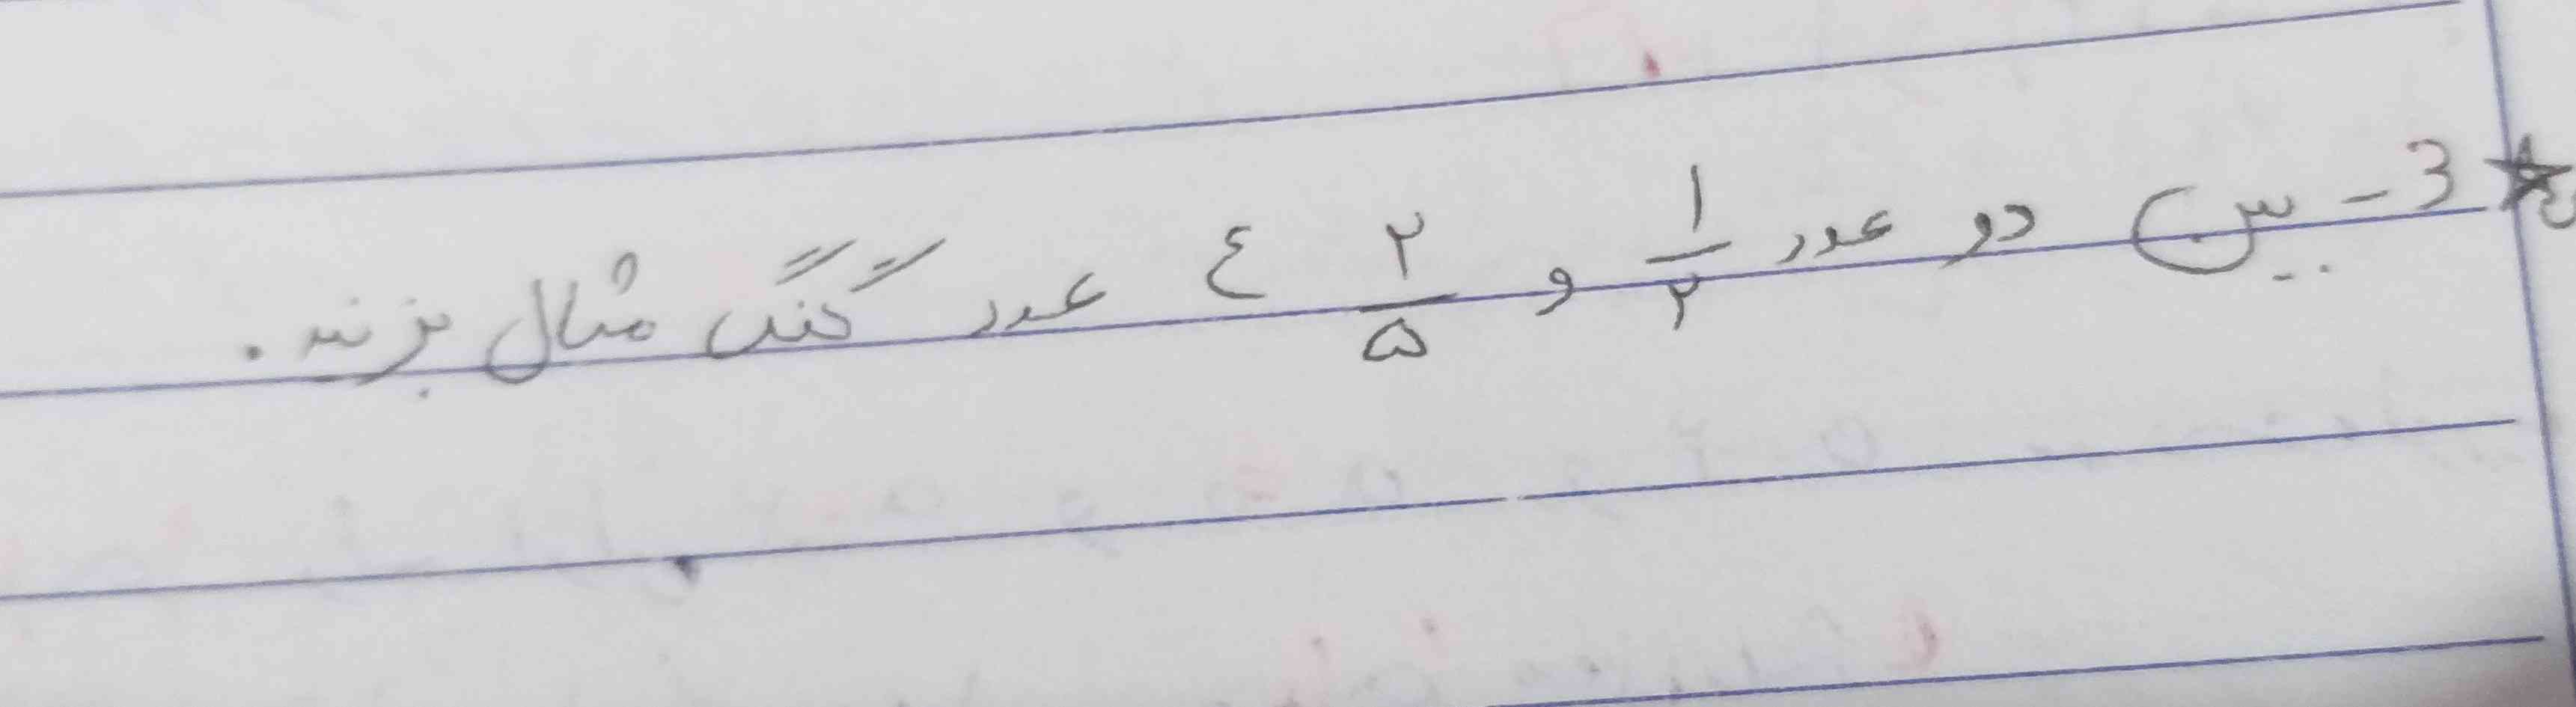 3 - بین دو عدد ۱/۲ و ۲/۵ ٤ عدد گنگ مثال بزنید.